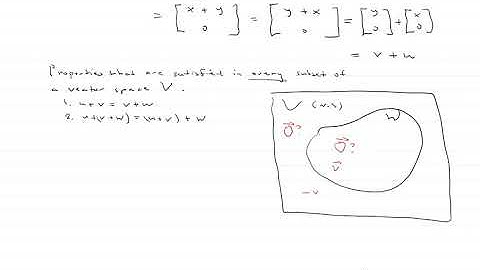 = [x + y 0] = [y + x 0] = [y 0] + [x 0]
= v + w
Properties that are satisfied in every subset of
a vector space V.
1. u + v = v + w
2. u + (v + w) = (u + v) + w
V (v.s) W
0? 0?
v
-v